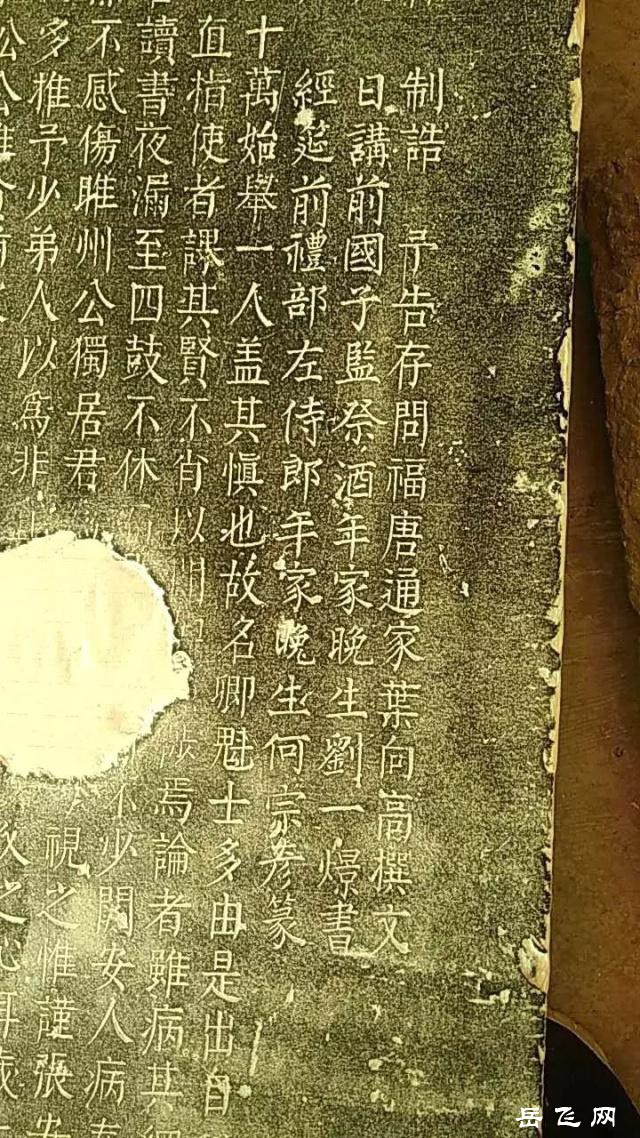 制誥 予告存問福唐通家葉向高撰文
日講前國子監祭酒年家晚生劉一燝書
經筵前禮部左侍郎年家晚生何宗彥篆
十萬始舉一人盖其慎也故名卿魁士多由是出自
直指使者課其賢不肖以 陟焉論者雖病其
讀書夜漏至四鼓不休 不少閒安人病
不感傷睢州公獨居君 視之惟謹張安
多推予少弟人以為非 久之
公公
岳飞网